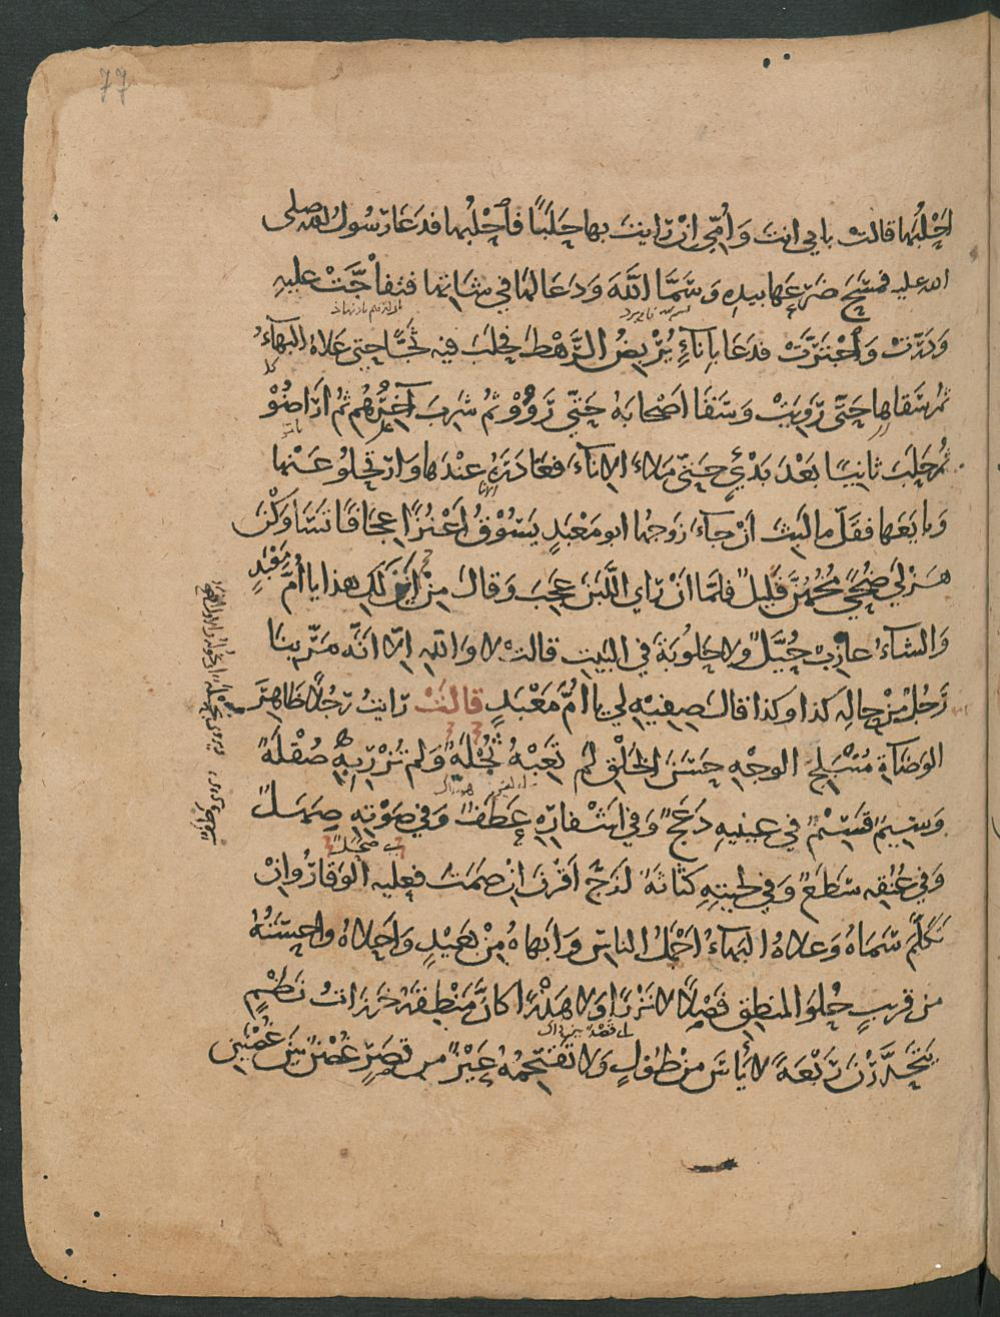 77
احْلُبَها قالت بابي انت وَاُمّي اِنْ رَاَيتَ بها حَلَبًا فاَحْلُبْها فدَعَا رَسُولُ الله صلى
الله عليه فمَسَحَ ضَرْعَها بيدِه وَسَمَّا اللَّهَ وَدَعَا لهَا في شَاتها فتفاَجَّتْ عليهِ
وَدَرَّتْ وَاجْتَرَّتْ فدَعَا بِاناءٍ يُرْبِضُ الرَّهْطَ فحَلبَ فيه ثَجًّا حتى عَلاهُ البَهاءُ
ثم سَقاها حَتّى رَوِيَتْ وَسَقَا اَصْحابَهُ حَتّى رَوُوْ ثُم شَرِبَ آخِرُهُم ثم اَرَاضُوْ
ثُم حَلَبَ ثانيًا بَعْدَ بَدْيٍ حَتّى مَلاءَ الاِناءَ فغادَرَهُ عِنْدَها وَارْتحَلُو عَنْها
وَبايَعَها فقَلَّ ما لَبِثَ اَنْ جاءَ زوجُها ابو مَعْبَدٍ يَسُوْقُ اَعْنُزًا عِجَافًا تَسَاوَكْنَ
هَزْلَى ضُحًى مُخُّهُنَّ قَلِيلٌ فلمَّا اَنْ رَاى اللَّبَنَ عَجِبَ وَقالَ مِنْ اَيْنَ لَكِ هذا يا اُمَّ مَعْبَدٍ
وَالشاءُ عازِبٌ حُيَّلٌ وَلا حَلُوبَةَ في البَيتِ قالت لا وَاللهِ اِلّا انَّه مَرَّ بنا
رَجُلٌ مِنْ حالِه كَذا وكَذا قالَ صِفِيْهِ لي يا اُمَّ مَعْبَدٍ قالتْ رَاَيتُ رَجُلًا ظاهِرَ
الوَضَاءَةِ مُتَبَلّجَ الوجْهِ حَسَنَ الخَلْقِ لم تَعِبْهُ ثُجْلَةٌ وَلم تُزْرِ بِهِ صُقْلَةٌ
وَسِيمٌ قَسِيْمٌ في عينيهِ دَعَجٌ وَفي اَشْفارِه عَطَفٌ وَفي صَوْتِه صَهَلٌ
وَفي عُنُقِه سَطَعٌ وَفي لحيتِهِ كَثَاثَةٌ اَزَجُّ اَقْرَنُ اِنْ صَمَتَ فعليه الوَقارُ وَاِنْ
تَكَلَّمَ سَمَاهُ وَعلاهُ البَهاءُ اَجْمَلُ الناسِ وَاَبهاهُ مِنْ بَعِيْدٍ وَاَحلاهُ واحسَنُهُ
من قريبٍ حُلوُ المنطِقِ فَصْلًا لا نَزْرًا وَلا هَذْرًا كانَّ مَنْطِقَهُ خَرَزَاتُ نَظْمٍ
يَتَحَدَّرْنَ رَبْعَةً لا يَاْسَ مِنْ طُوْلٍ وَلا تَقْتَحِمُهُ عَيْنٌ من قِصَرٍ غُصْنٌ بَيْنَ غُصْنَيْنِ